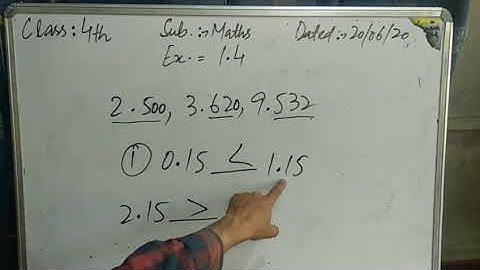 Class:4th Sub.:-Maths Dated:-20/06/20
Ex. = 1.4
2.500, 3.620, 9.532
① 0.15 < 1.15
2.15 >